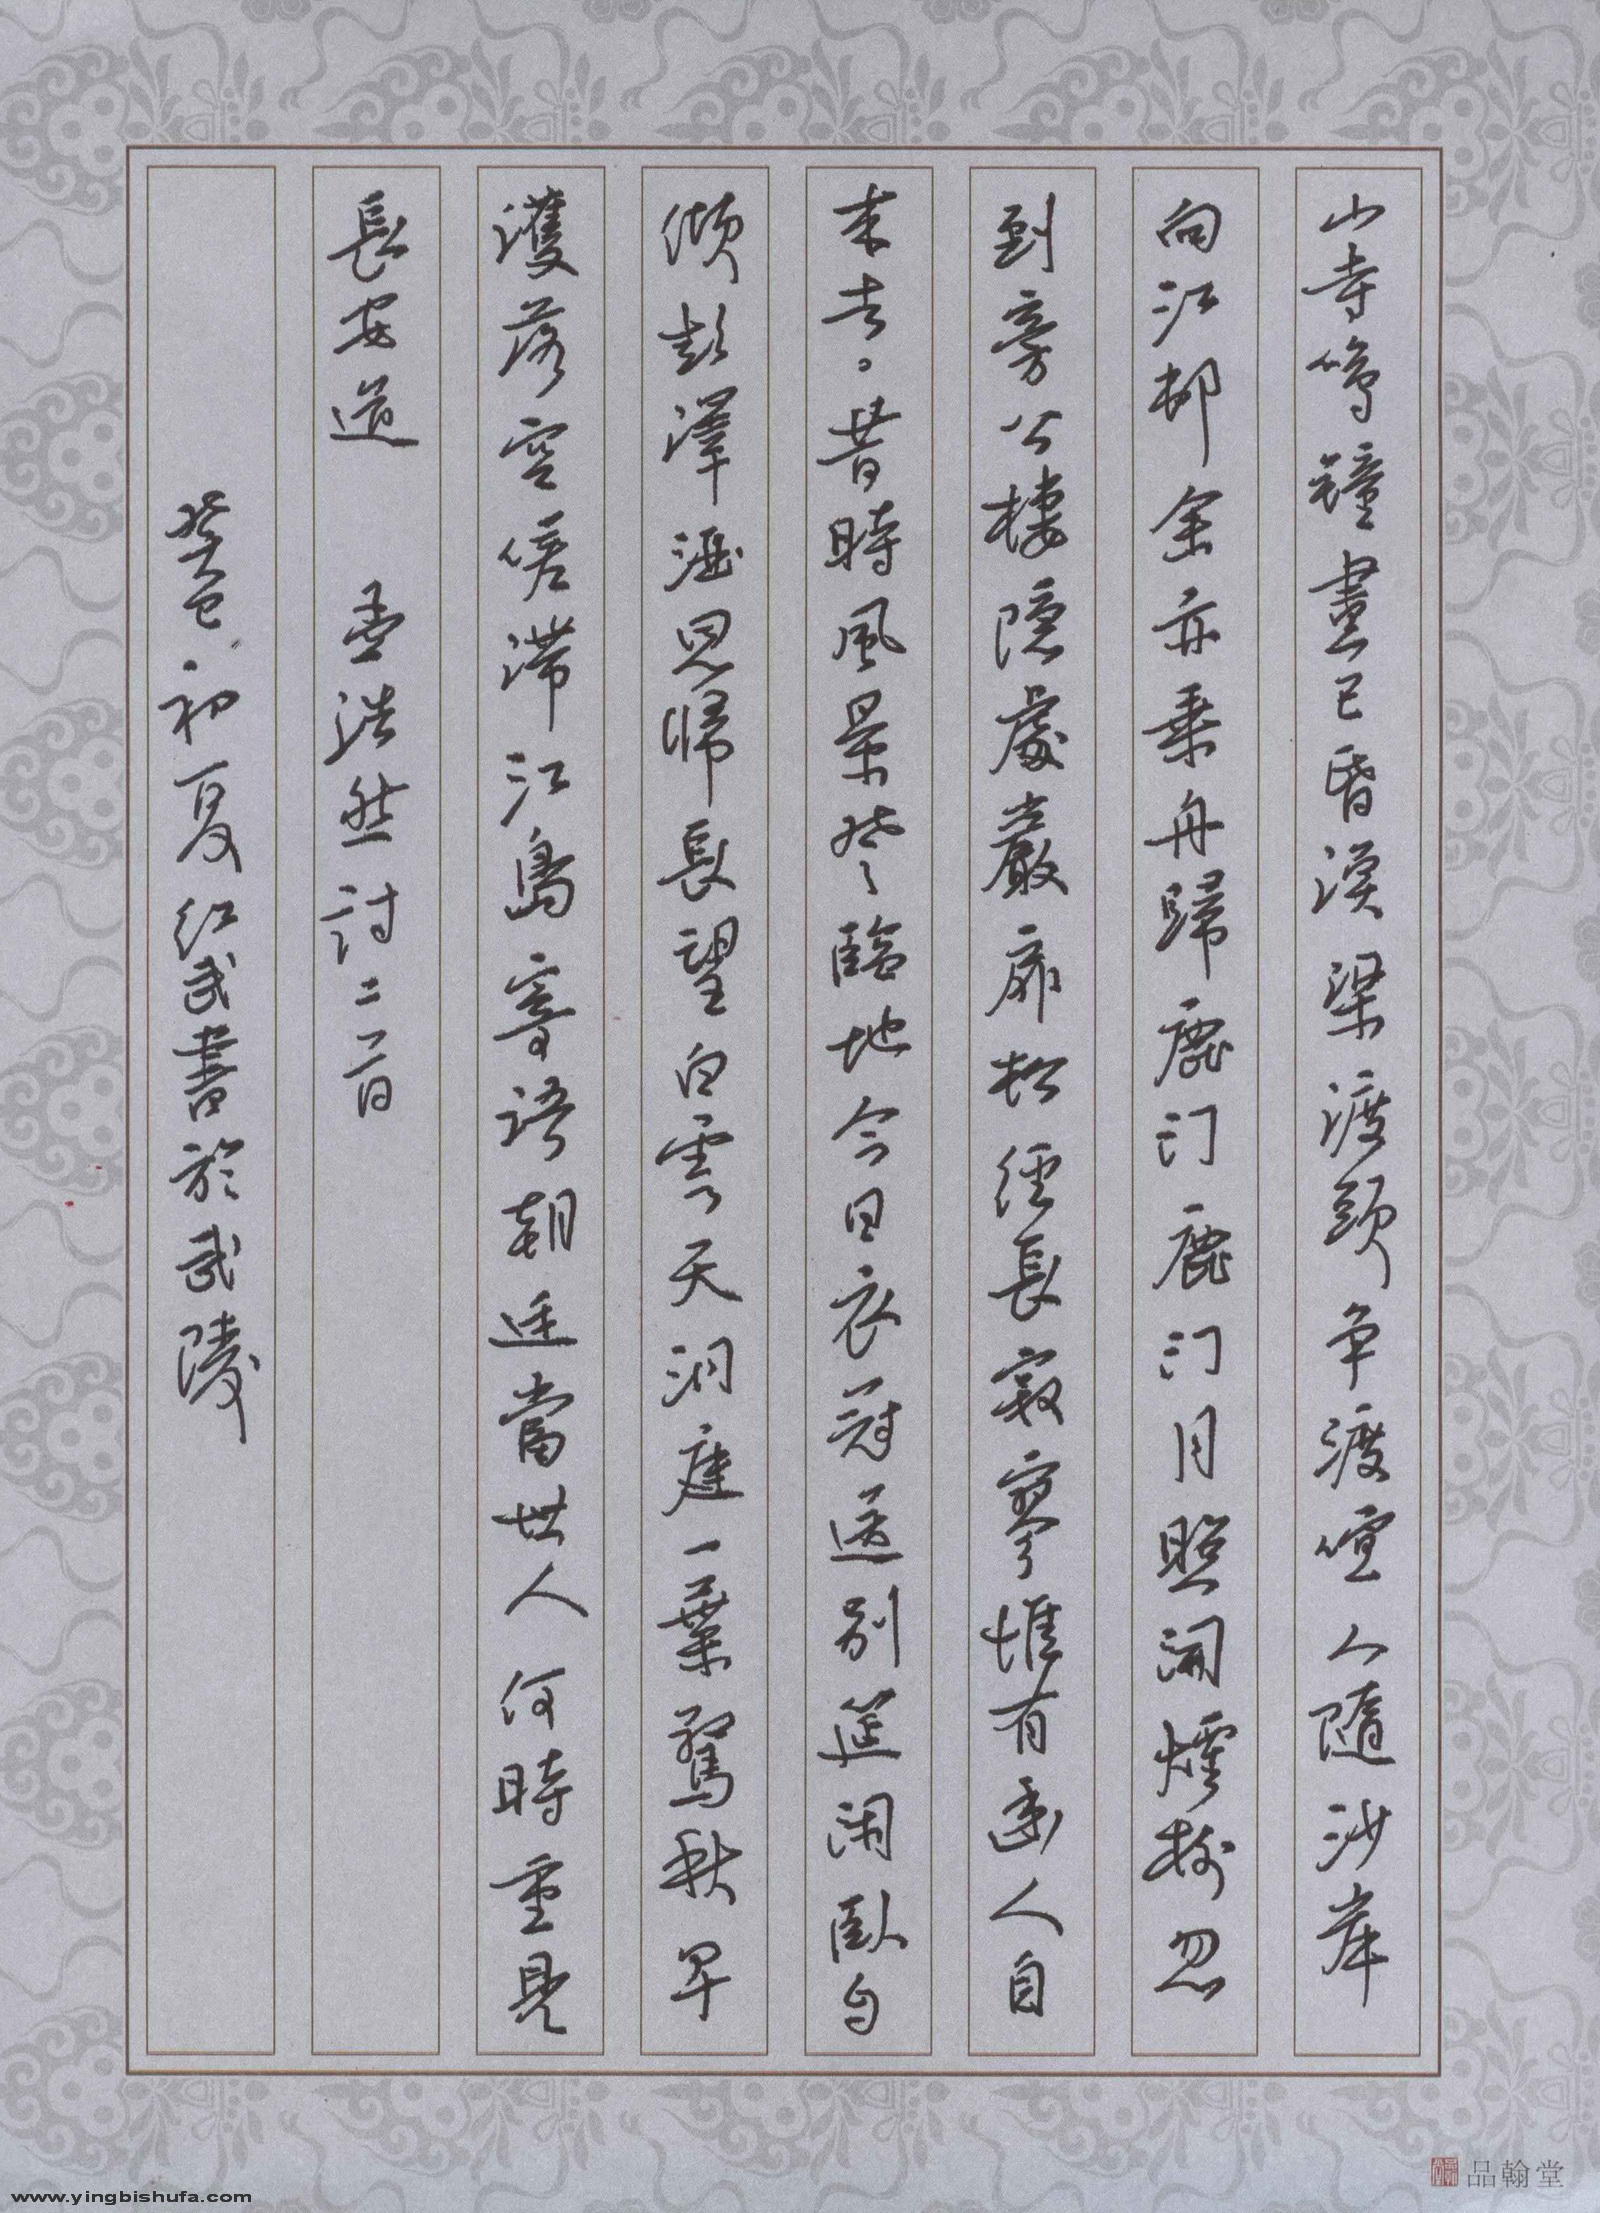 山寺鳴鐘晝已昏漁梁渡頭争渡喧人隨沙岸
向江邨余亦乘舟歸鹿门鹿门月照開煙樹忽
到旁公棲隱處巖扉松徑長寂寥惟有幽人自
来去。昔時風景登臨地今日衣冠送别筵闲卧自
傾彭澤酒思歸長望白雲天洞庭一葉驚秋早
濩落空嗟滞江島寄語朝廷當世人何時重見
長安道 孟浩然詩二首
癸巳初夏红武書於武陵
品翰堂
www.yingbishufa.com